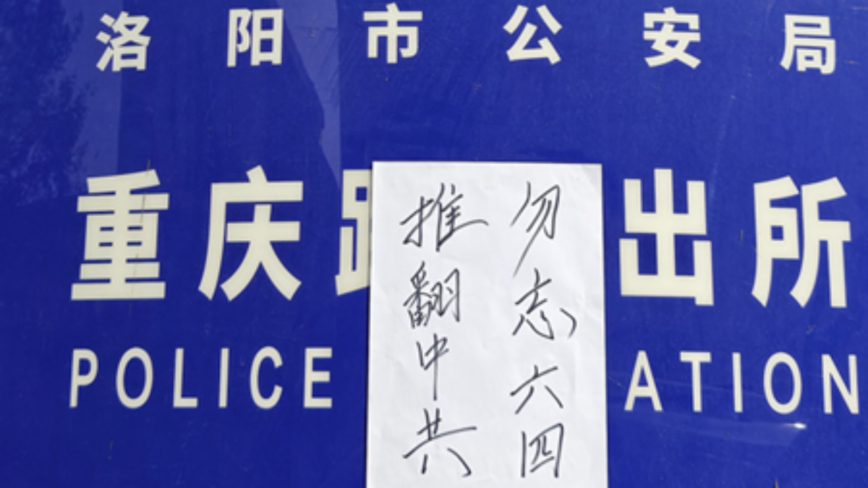 洛阳市公安局
重庆 出所
POLICE ATION
勿忘六四
推翻中共